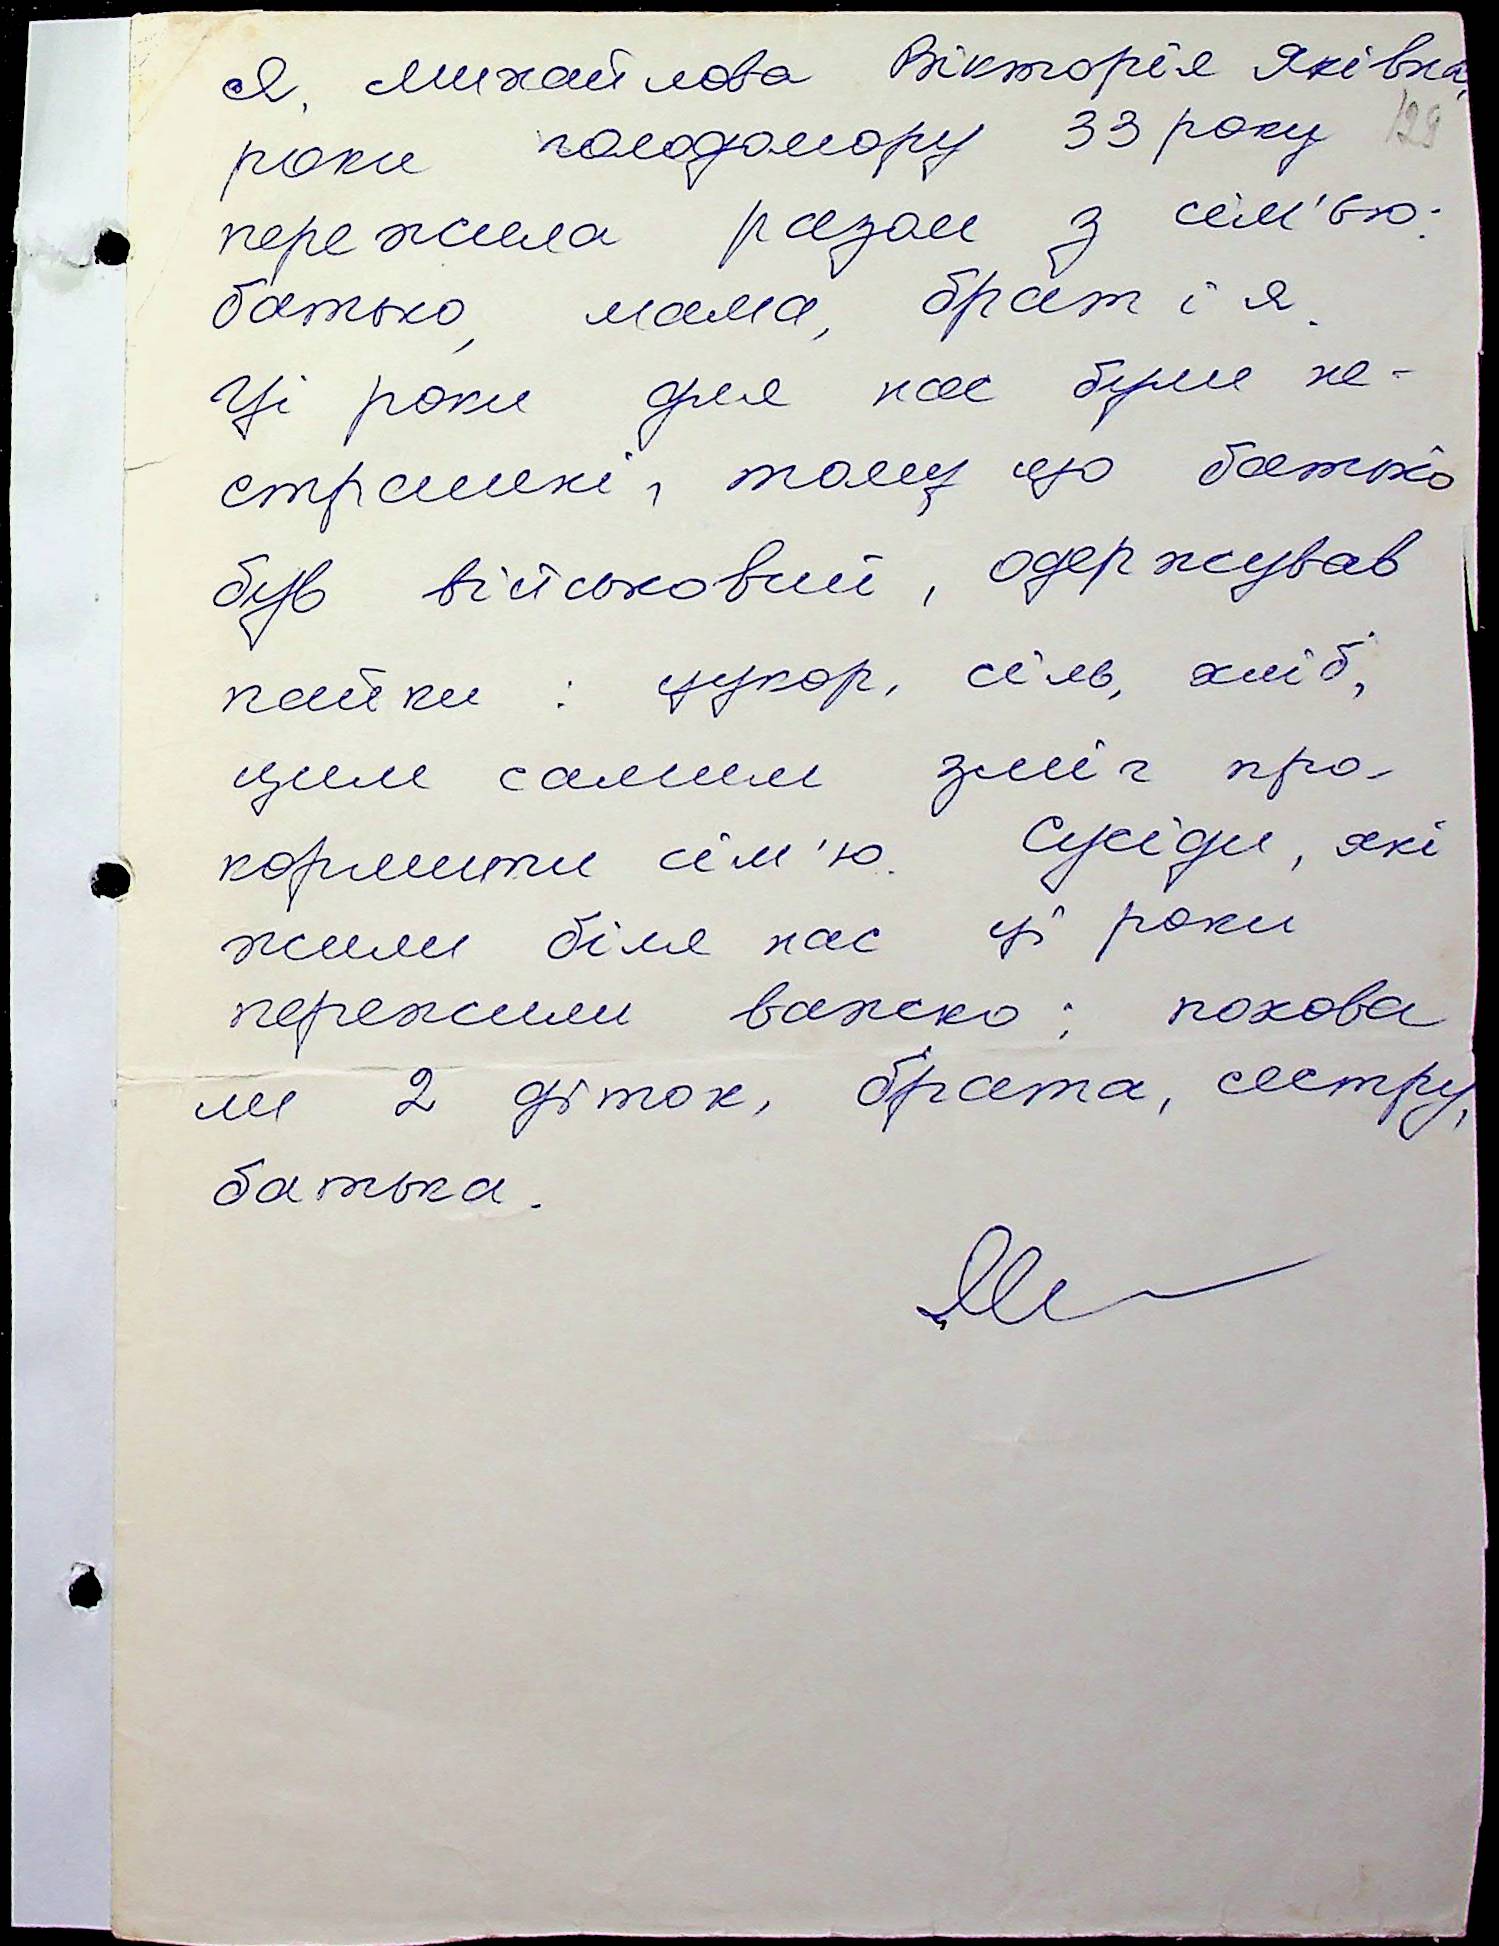 Я, Михайлова Вікторія Яківна,
роки голодомору 33 року 129
пережила разом з сім'вю:
батько, мама, брат і я.
Ці роки для нас були не-
страшні, тому що батько
був військовий, одержував
пайки : цукор, сіль, хліб,
цим самим зміг про-
кормити сім'ю. Сусіди, які
жили біля нас ці роки
пережили важко: похова
ли 2 діток, брата, сестру,
батька.